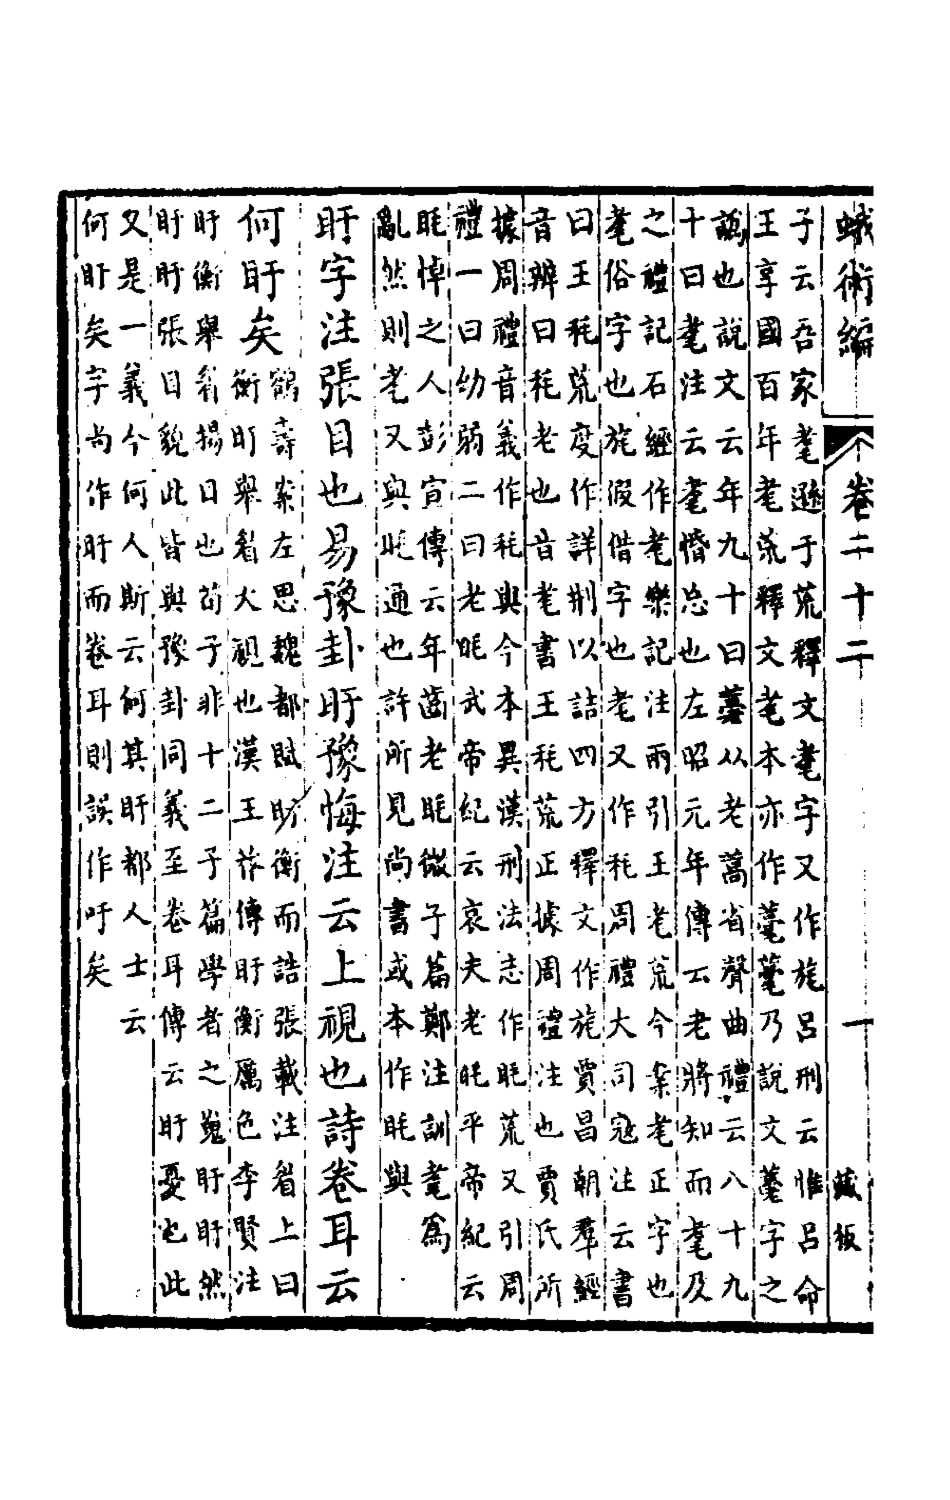 蛾術編
卷二十二
一
藏板
子云吾家耄遜于荒釋文耄字又作旄呂刑云惟呂命
王享國百年耄荒釋文耄本亦作薹薹乃說文薹字之
譌也說文云年九十曰薹从老蒿省聲曲禮云八十九
十曰耄注云耄惛忘也左昭元年傳云老將知而耄及
之禮記石經作耄樂記注兩引王耄荒今案耄正字也
耄俗字也旄假借字也耄又作秏周禮大司寇注云書
曰王秏荒度作詳刑以詰四方釋文作旄賈昌朝羣經
音辨曰秏老也音耄書王秏荒正據周禮注也賈氏所
據周禮音義作秏與今本異漢刑法志作眊荒又引周
禮一曰幼弱二曰老眊武帝紀云哀夫老眊平帝紀云
眊悼之人彭宣傳云年齒老眊微子篇鄭注訓耄爲
亂然則耄又與眊通也許所見尚書或本作眊與
盱字注張目也易豫卦盱豫悔注云上視也詩卷耳云
何盱矣
鶴壽案左思魏都賦盱衡而誥張載注眉上曰
衡盱舉眉大視也漢王莽傳盱衡厲色李賢注
盱衡舉眉揚目也荀子非十二子篇學者之嵬盱盱然
盱盱張目貌此皆與豫卦同義至卷耳傳云盱憂也此
又是一義今何人斯云何其盱都人士云
何盱矣字尚作盱而卷耳則誤作吁矣